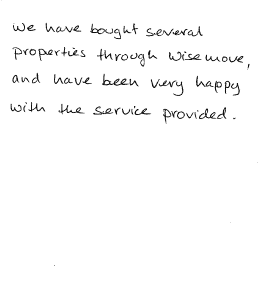 We have bought several
properties through Wisemove,
and have been very happy
with the service provided.